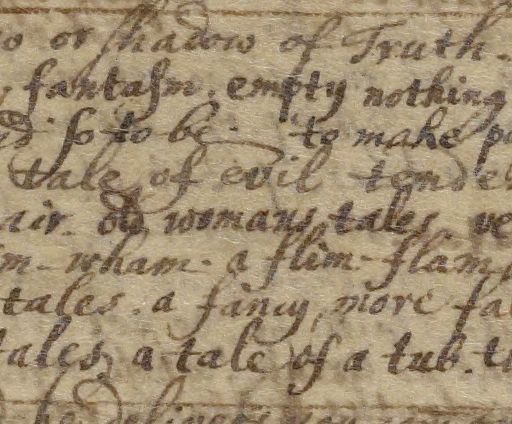 or shadow of Truth.
fantasm. empty nothing
so to be. to make
tale of evil tende
air. old womans tales. ve
m-wham. a flim-flam
tales. a fancy, more fa
tales, a tale of a tub. t